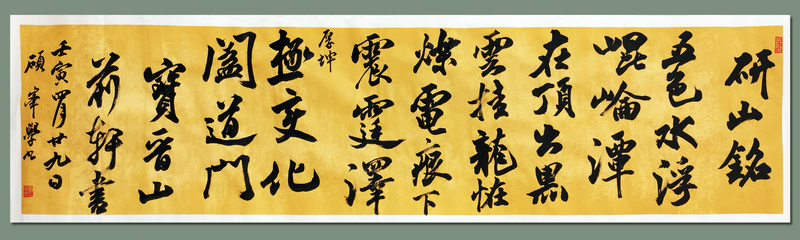 研山銘
五色水浮
崐崘潭
在頂出黑
雲挂龍怪
爍電痕下
震霆澤
厚坤
極變化
闔道門
寶晉山
前軒書
壬寅四月廿九日
碩峯學書